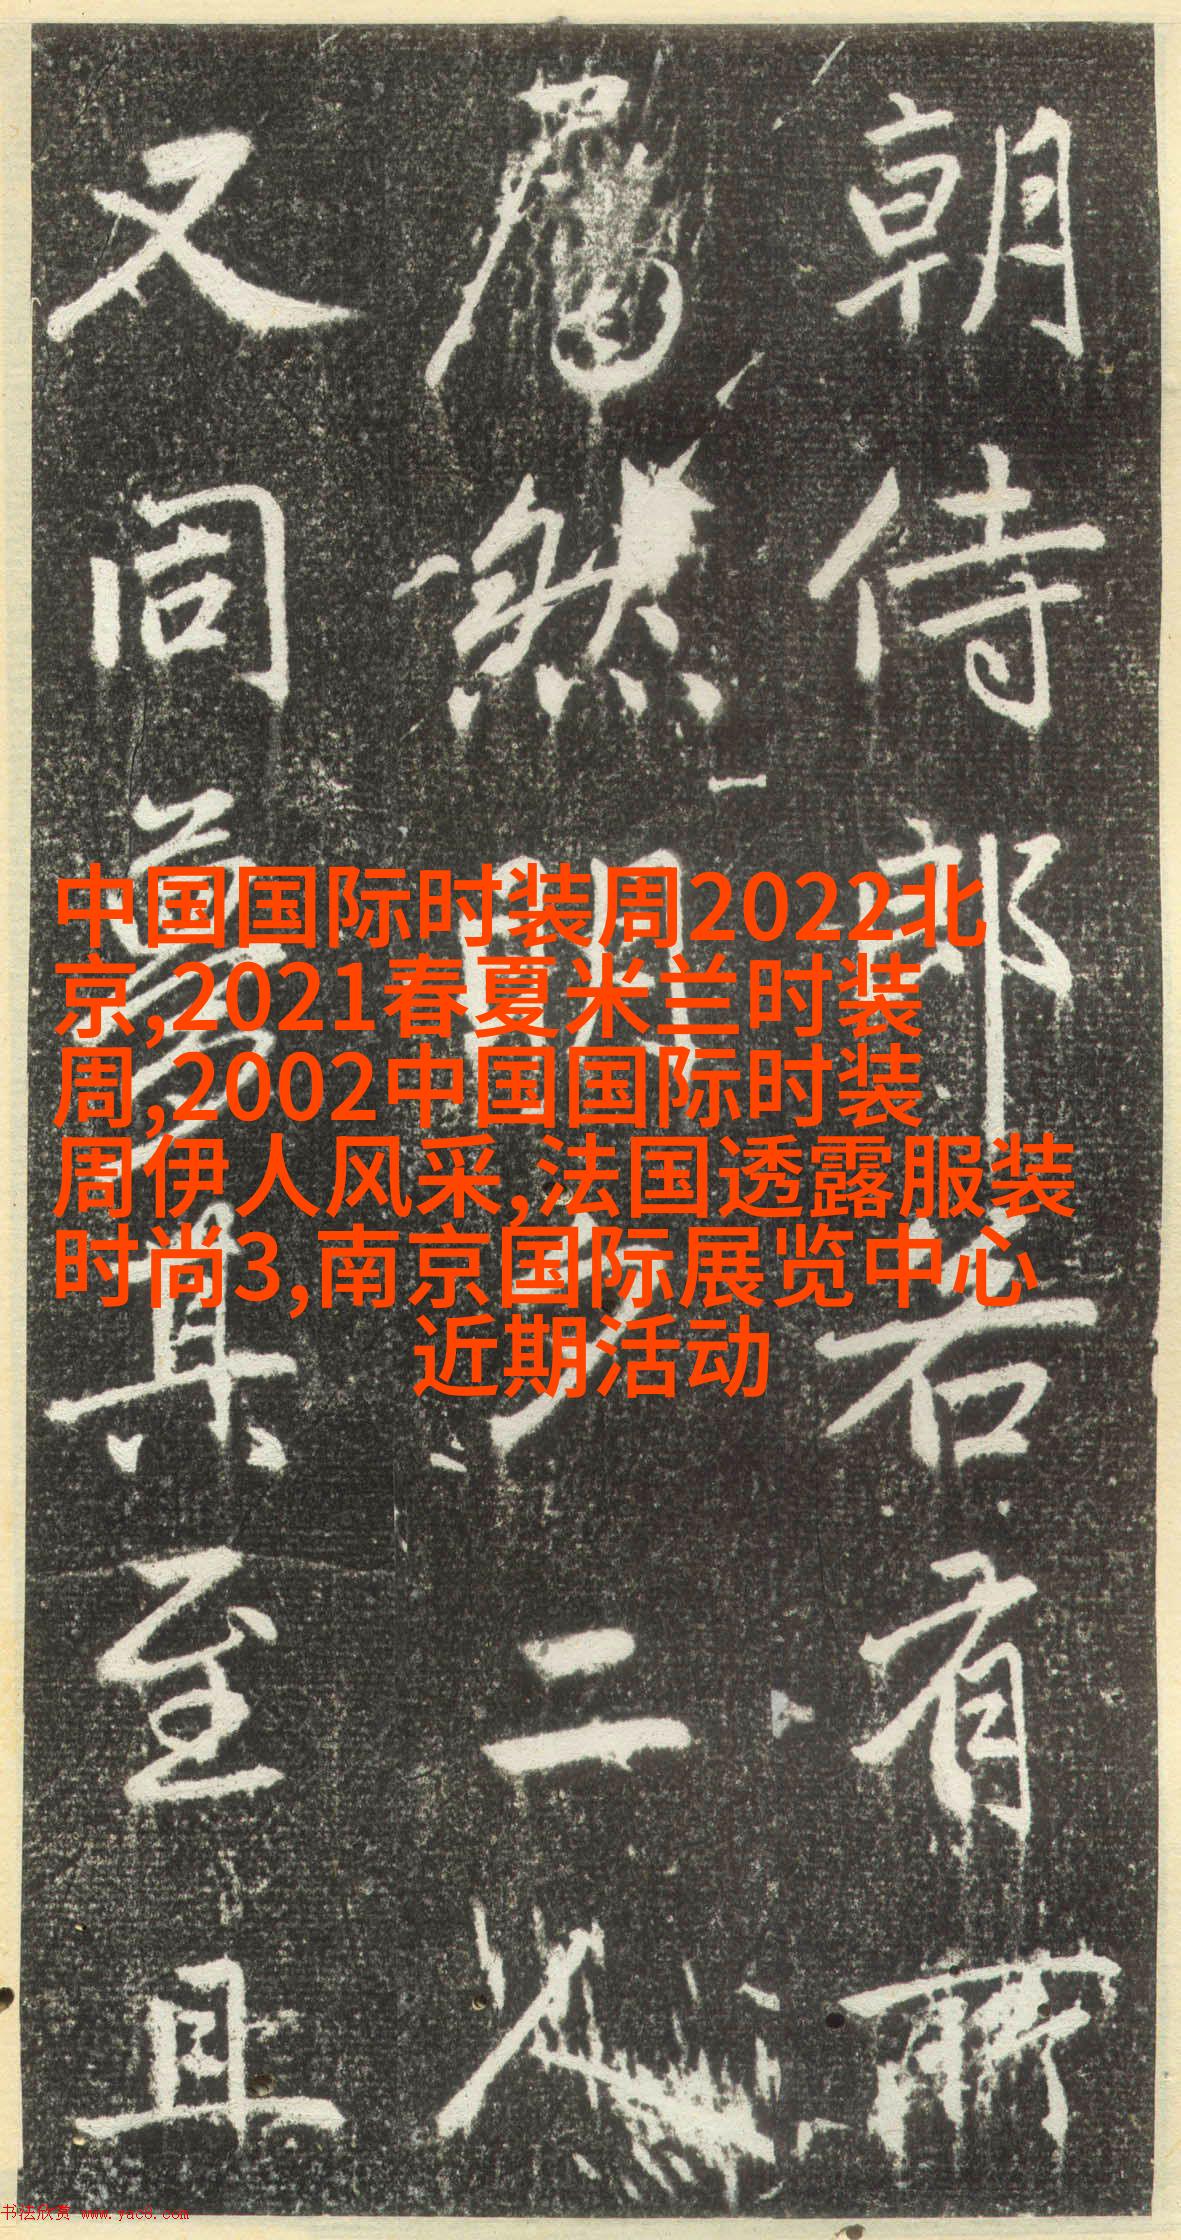 朝侍郎若有所
然開目二人
又同夢其至且
中国国际时装周2022北
京,2021春夏米兰时装
周,2002中国国际时装
周伊人风采,法国透露服装
时尚3,南京国际展览中心
近期活动
书法欣赏 www.yac8.com